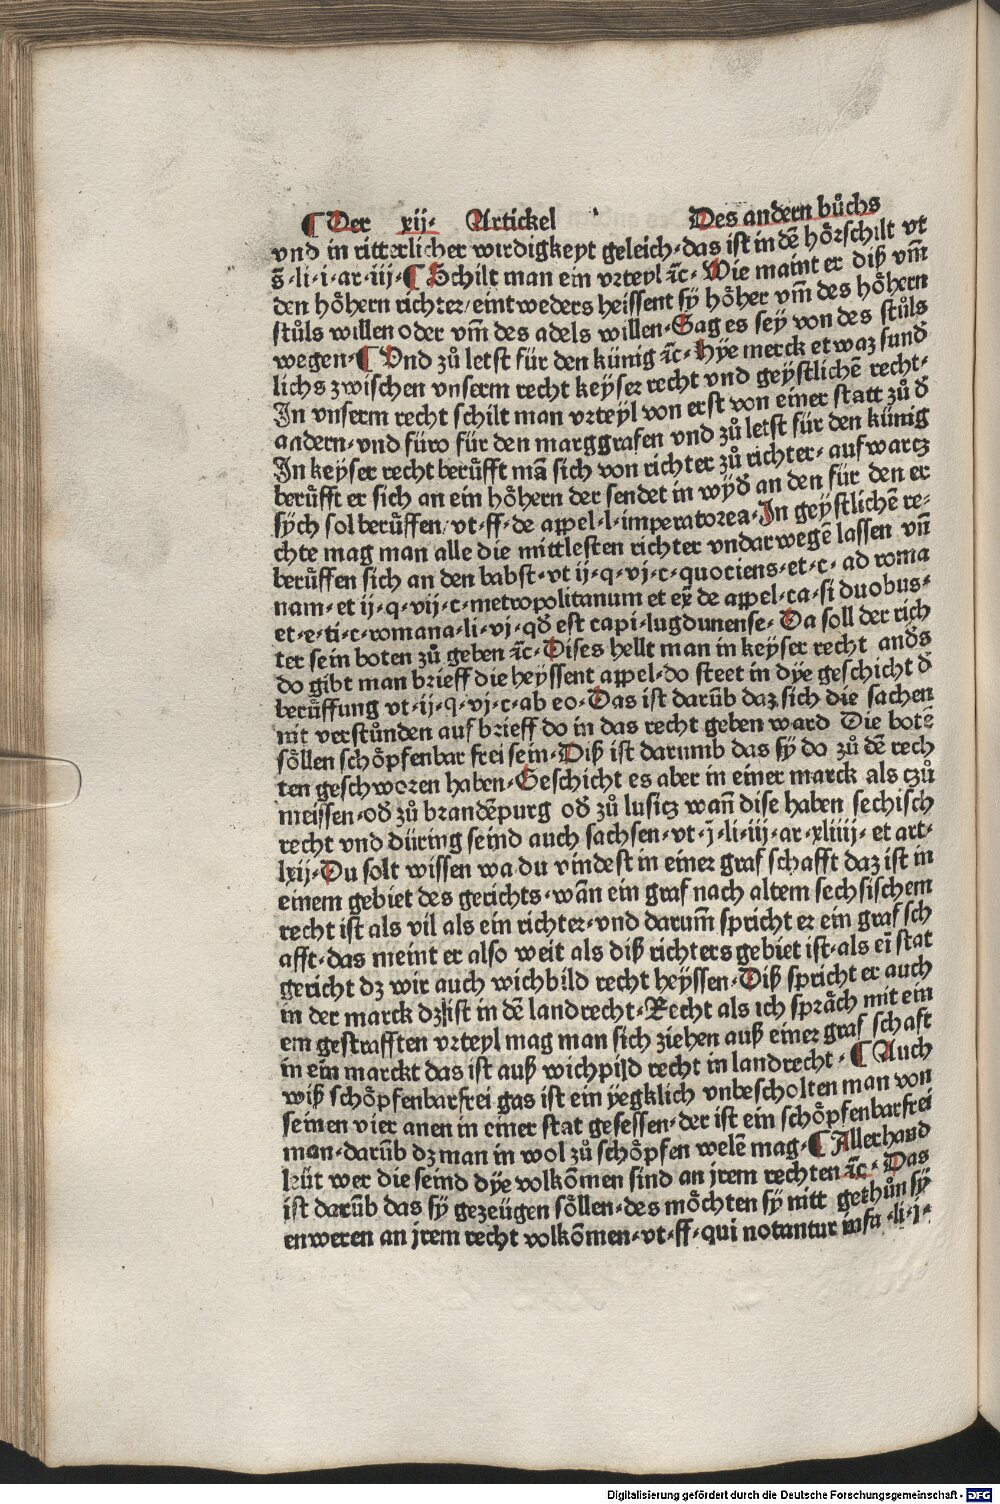 ¶ Der xij· Artickel Des andern bůchs
vnd in ritterlicher wirdigkeyt geleich·das ist in dē hörschilt vt
s̄·li·i·ar·iij·¶ Schilt man ein vrteyl ꝛc·Wie maint er diß vm̄
den höhern richter/eintweders heissent sy höher vm̄ des höhern
stůls willen oder vm̄ des adels willen·Sag es sey von des stůls
wegen·¶ Vnd zů letst für den künig ꝛc·Hye merck etwaz sund̄
lichs zwischen vnserm recht keyser recht vnd geystlichē recht·
In vnserm recht schilt man vrteyl von erst von einer statt zů d̄
andern·vnd füro für den marggrafen vnd zů letst für den künig
In keyser recht berüfft mā sich von richter zů richter·aufwartz
berüfft er sich an ein höhern der sendet in wyd̄ an den für den er
sych sol berüffen/vt·ff·de appel·l·imperatorea·In geystlichē re⸗
chte mag man alle die mittlesten richter vndarwegē lassen vn̄
berüffen sich an den babst·vt ij·q·vj·c·quociens·et·c·ad roma
nam·et ij·q·vij·c·metropolitanum et ex̄ de appel·ca·si duobus·
et·e·ti·c·romana·li·vj·qd̄ est capi·lugdunense·Da soll der rich
ter sein boten zů geben ꝛc·Dises hellt man in keyser recht and̄s
do gibt man brieff die heyssent appel·do steet in dye geschicht d̄
berüffung vt·ij·q·vj·c·ab eo·Das ist darūb daz sich die sachen
nit verstůnden auf brieff do in das recht geben ward Die botē
söllen schöpfenbar frei sein·Diß ist darumb das sy do zů dē rech
ten geschworen haben·Geschicht es aber in einer marck als czů
meissen·od̄ zů brandēpurg od̄ zů lusitz wan̄ dise haben sechisch
recht vnd düring seind auch sachsen·vt·j̄·li·iij·ar·xliiij·et art·
lxij·Du solt wissen wa du vindest in einer graf schafft daz ist in
einem gebiet des gerichts·wān ein graf nach altem sechsischem
recht ist als vil als ein richter·vnd darum̄ spricht er ein graf sch
afft·das meint er also weit als diß richters gebiet ist·als eī stat
gericht dz wir auch wichbild recht heyssen·Diß spricht er auch
in der marck dz ist in dē landrecht·Recht als ich sprāch mit ein
em gestrafften vrteyl mag man sich ziehen auß einer graf schaft
in ein marckt das ist auß wichpild recht in landrecht·¶ Auch
wiß schöpfenbarfrei gas ist ein yegklich vnbescholten man von
seinen vier anen in einer stat gesessen·der ist ein schöpfenbarfrei
man·darūb dz man in wol zů schöpfen welē mag·¶ Allerhand
leüt wer die seind dye volkōmen sind an jrem rechten ꝛc·Das
ist darūb das sy gezeügen söllen·des möchten sy nitt gethůn sy
enweren an jrem recht volkōmen·vt·ff·qui notantur infa·li·j·
Digitalisierung gefördert durch die Deutsche Forschungsgemeinschaft - DFG